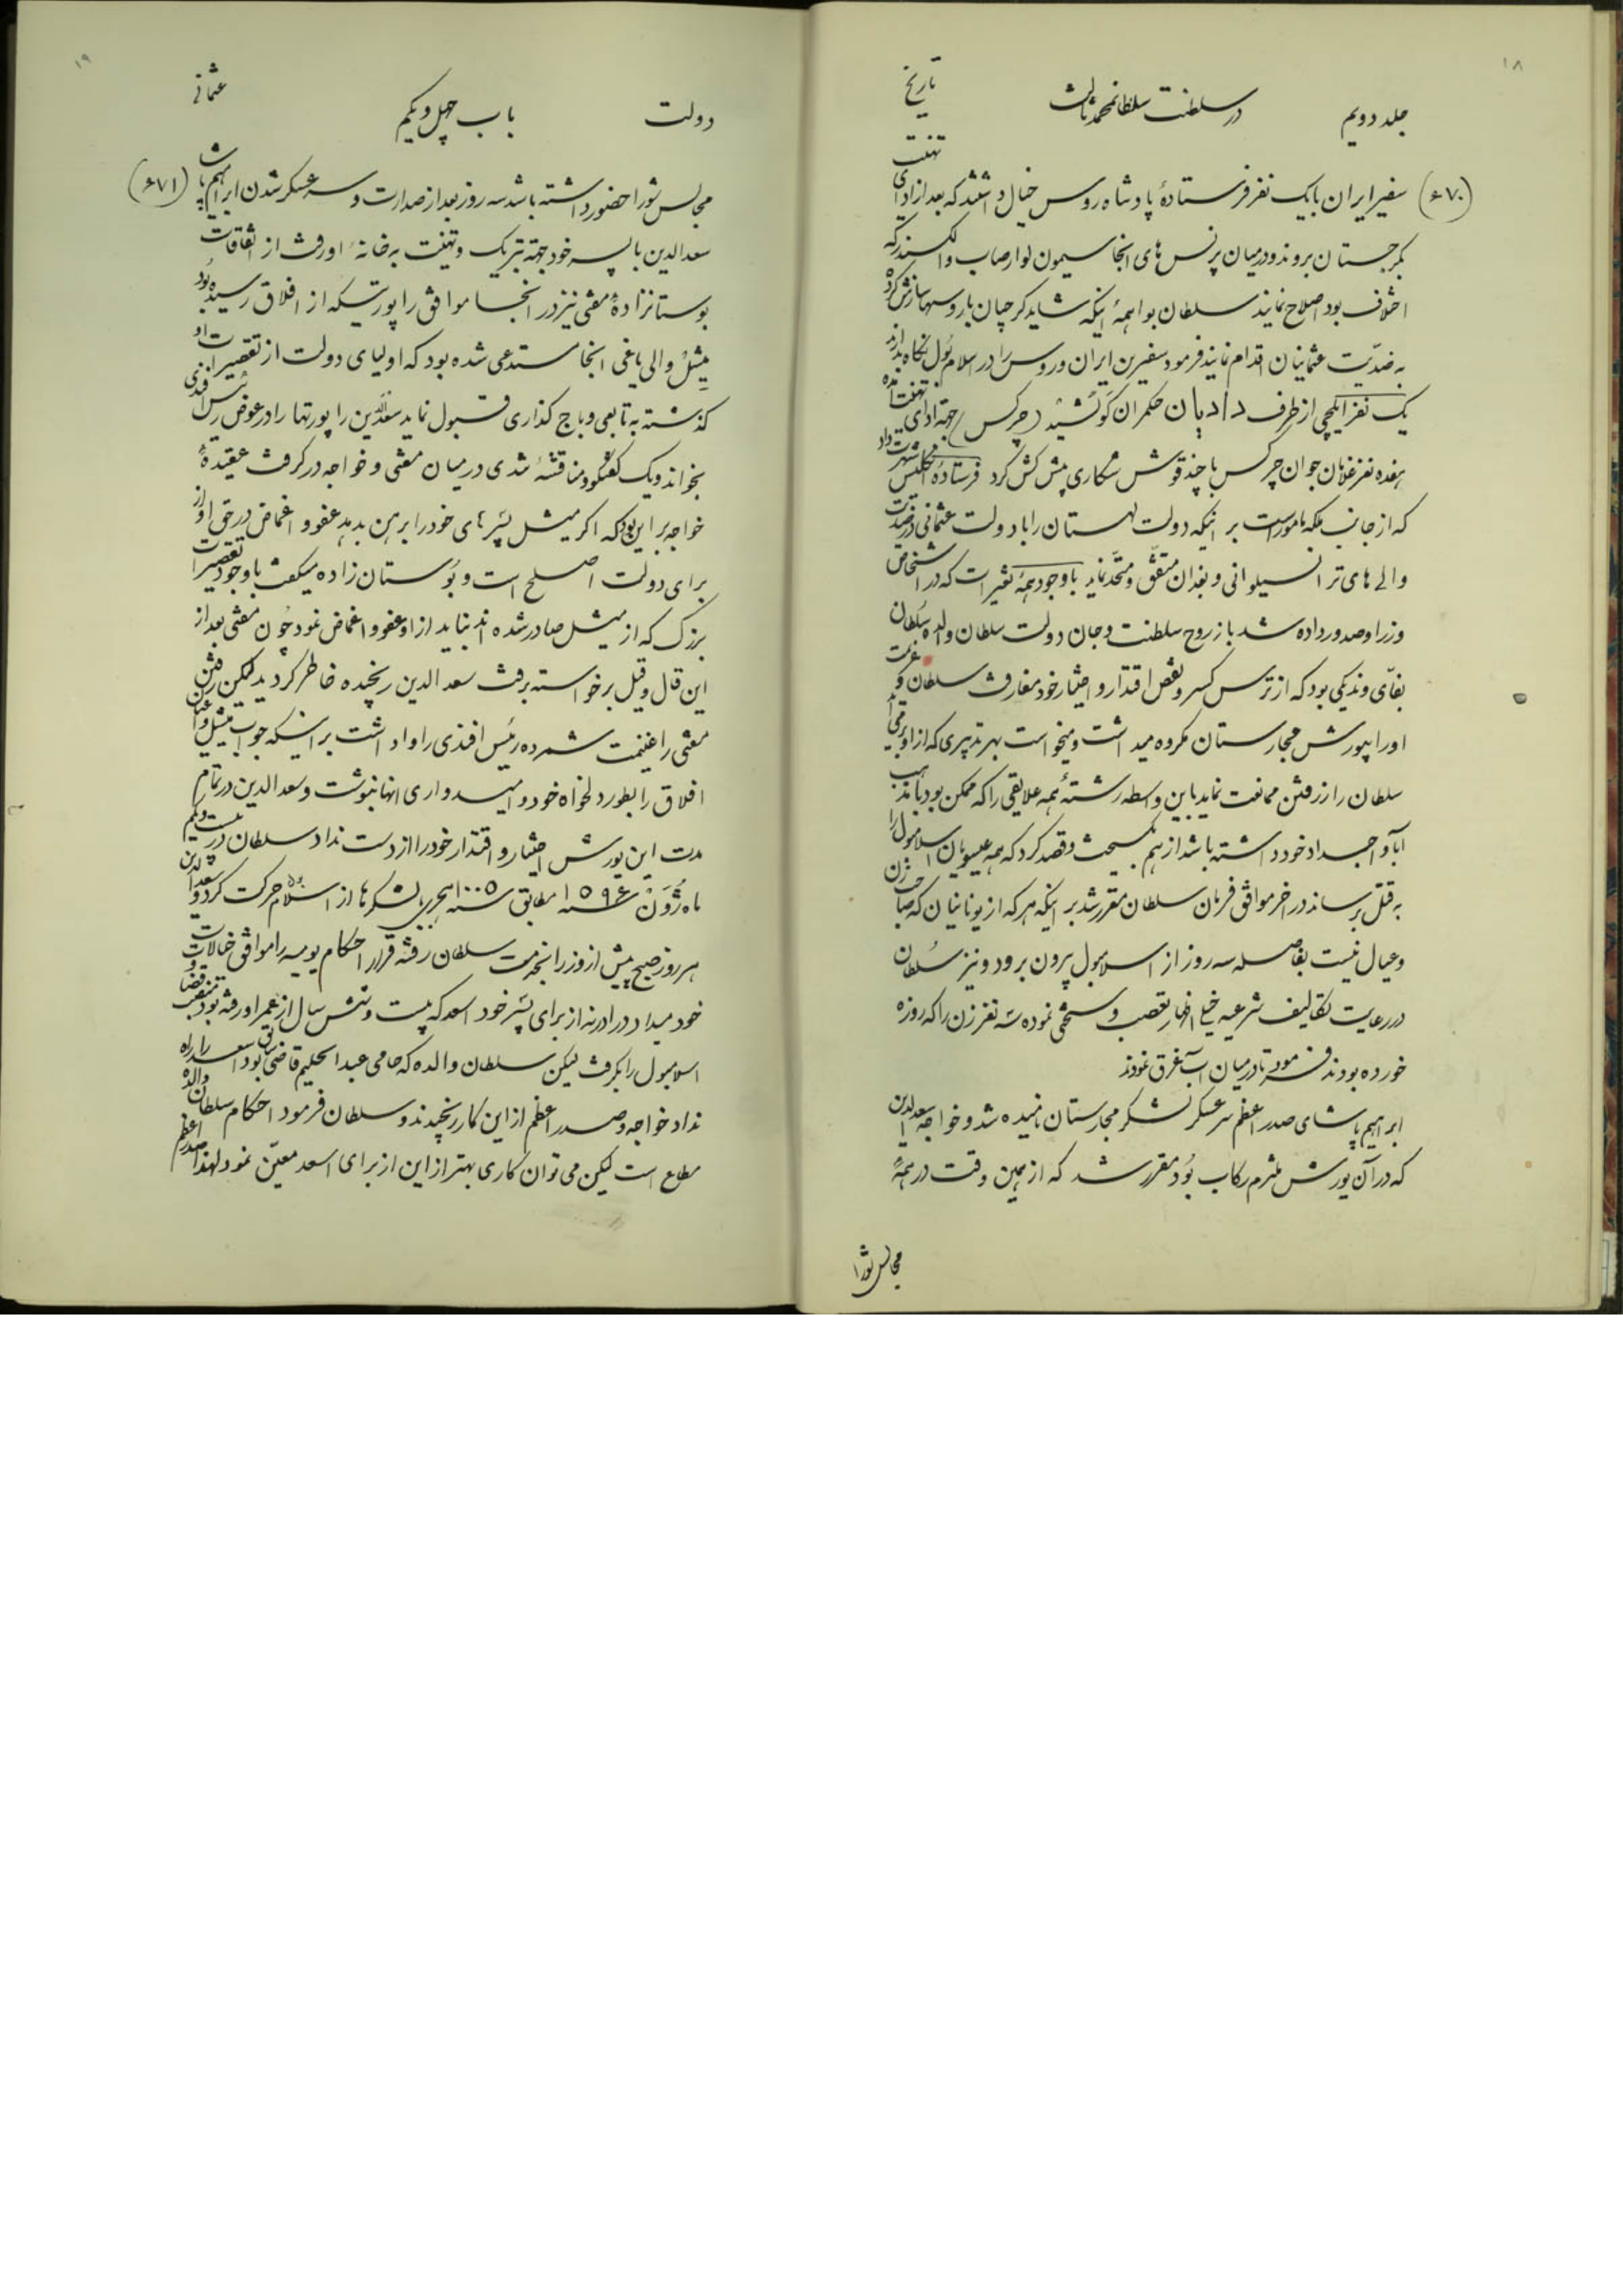 ۱۸
جلد دویم در سلطنت سلطانمحمد ثالث تاریخ
(۶۷۰) سفیر ایران با یک نفر فرستادهٔ پادشاه روس خیال داشتند که بعد از ادای تهنیت
بکرجستان بروند و در میان پرنس های انجا سیمون لوارصاب و الکسندر که
اختلاف بود اصلاح نمایند سلطان بواهمهٔ اینکه شاید کرجیان با روسها سازش کرده
به ضدّیت عثمانیان اقدام نمایند فرمود سفیرین ایران و روس را در اسلامبول نکاه بدارند
یک نفر ایلچی از طرف دادیان حکمران کوتشید (چرکس) جهة ادای تهنیت آمده
هفده نفر غلامان جوان چرکس با چند قوش شکاری پیش کش کرد فرستادهٔ انکلیس شهرت داد
که از جانب ملکه مامور است بر اینکه دولت لهستان را با دولت عثمانی در ضدیت
والی های ترانسیلوانی و بغدان متفّق و متحّد نماید با وجود همهٔ تغییرات که در اشخاص
وزرا و صدور داده شد باز روح سلطنت و جان دولت سلطان والدهٔ سلطان
بفائی وندیکی بود که از ترس کسر و نقص اقتدار و اختیار خود مفارقت سلطان و عزیمت
او را بیورش مجارستان مکروه میداشت و میخواست بهر تدبیری که از او برمی آید
سلطان را از رفتن ممانعت نماید باین واسطه رشتهٔ همه علایقی را که ممکن بود با مذهب
آبا و اجداد خود داشته باشد از هم کسیخت و قصد کرد که همه عیسویان اسلامبول را
به قتل برساند در اخر موافق فرمان سلطان مقرر شد بر اینکه هر که از یونانیان که صاحب زن
و عیال نیست بفاصله سه روز از اسلامبول بیرون برود و نیز سلطان
در رعایت تکالیف شرعیه خیلی اظهار تعصب و سختی نموده سه نفر زن را که روزه
خورده بودند فرمود تا در میان آب غرق نمودند
ابراهیم پاشای صدر اعظم سرعسکر لشکر مجارستان نامیده شد و خواجه سعدالدین
که در آن یورش ملتزم رکاب بود مقرر شد که از همین وقت در همهٔ
مجالس شورا
۱۹
دولت باب چهل و یکم عثمانی
مجالس شورا حضور داشته باشد سه روز بعد از صدارت و سرعسکر شدن ابراهیم پاشا (۶۷۱)
سعدالدین با پسر خود جهة تبریک و تهنیت به خانهٔ او رفت از اتفاقات
بوستانزادهٔ مفتی نیز در انجا موافق راپورتیکه از افلاق رسیده بود
میشل والی یاغی انجا مستدعی شده بود که اولیای دولت از تقصیرات او
کذشته به تابعی و باج کذاری قبول نماید سعدالدین راپورتها را در عوض رئیس افندی
بخواند و یک کفتکو و مناقشهٔ شدی در میان مفتی و خواجه در کرفت عقیدهٔ
خواجه بر این بود که اکر میشل پسر های خود را برهن بدهد عفو و اغماض در حق او از
برای دولت اصلح است و بوستان زاده میکفت با وجود تقصیرات
بزرک که از میشل صادر شده اند نباید از او عفو و اغماض نمود چون مفتی بعد از
این قال و قیل برخواسته برفت سعد الدین رنجیده خاطر کردید لیکن رفتن
مفتی را غنیمت شمرده رئیس افندی را واداشت بر اینکه جواب میشل و اعیان
افلاق را بطور دلخواه خود و امیدواری انها بنوشت و سعد الدین در تمام
مدت این یورش اختیار و اقتدار خود را از دست نداد سلطان در بیست و یکم
ماه ژُوَنْ ۱۵۹۶ مطابق سنه ۱۰۰۵ هجری با لشکرها از اسلامبول حرکت کرد و سعدالدین
هر روز صبح پیش از وزرا بخدمت سلطان رفته قرار احکام یومیه را موافق خیالات
خود میداد در ادرنه از برای پسر خود اسعد که بیست و شش سال از عمر او رفته بود منصب قضاوت
اسلامبول را بکرفت لیکن سلطان والده که حامی عبدالحلیم قاضی سابق بود اسعد را راه
نداد خواجه و صدر اعظم از این کار رنجیدند و سلطان فرمود احکام سلطان والده
مطاع است لیکن می توان کاری بهتر از این از برای اسعد معیّن نمود لهذا صدر اعظم